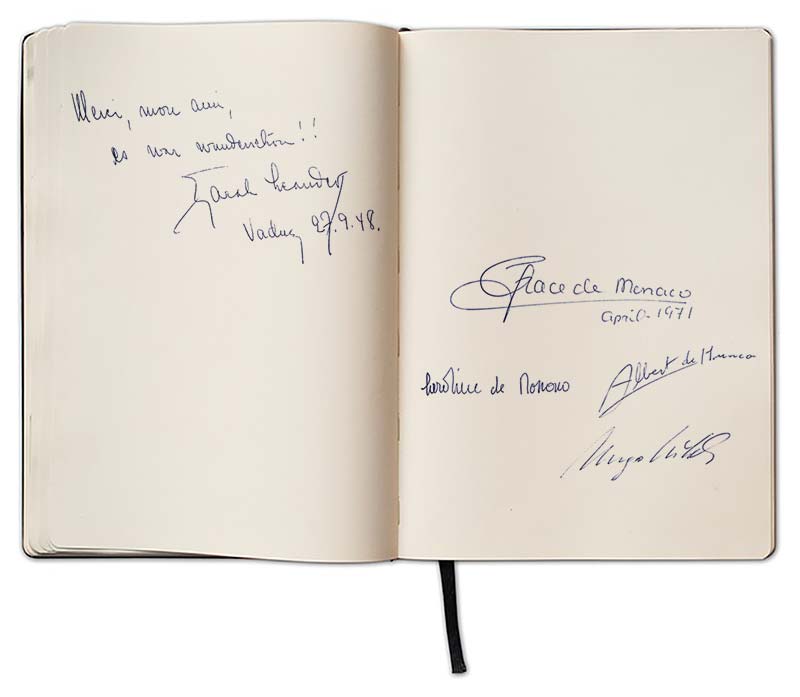 Merci, mon ami,
es war wunderschön!!
Zarah Leander
Vaduz 27.9.48.
Grace de Monaco
April-1971
Caroline de Monaco
Albert de Monaco